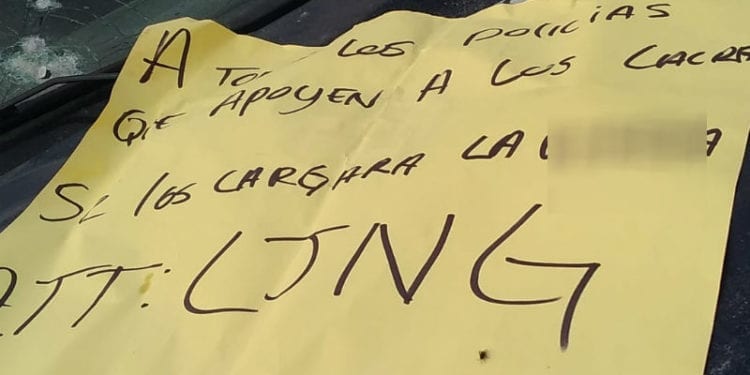 A TO LOS POLICIAS
QUE APOYEN A LOS LACRA
SE LOS CARGARA LA
ATT: CJNG